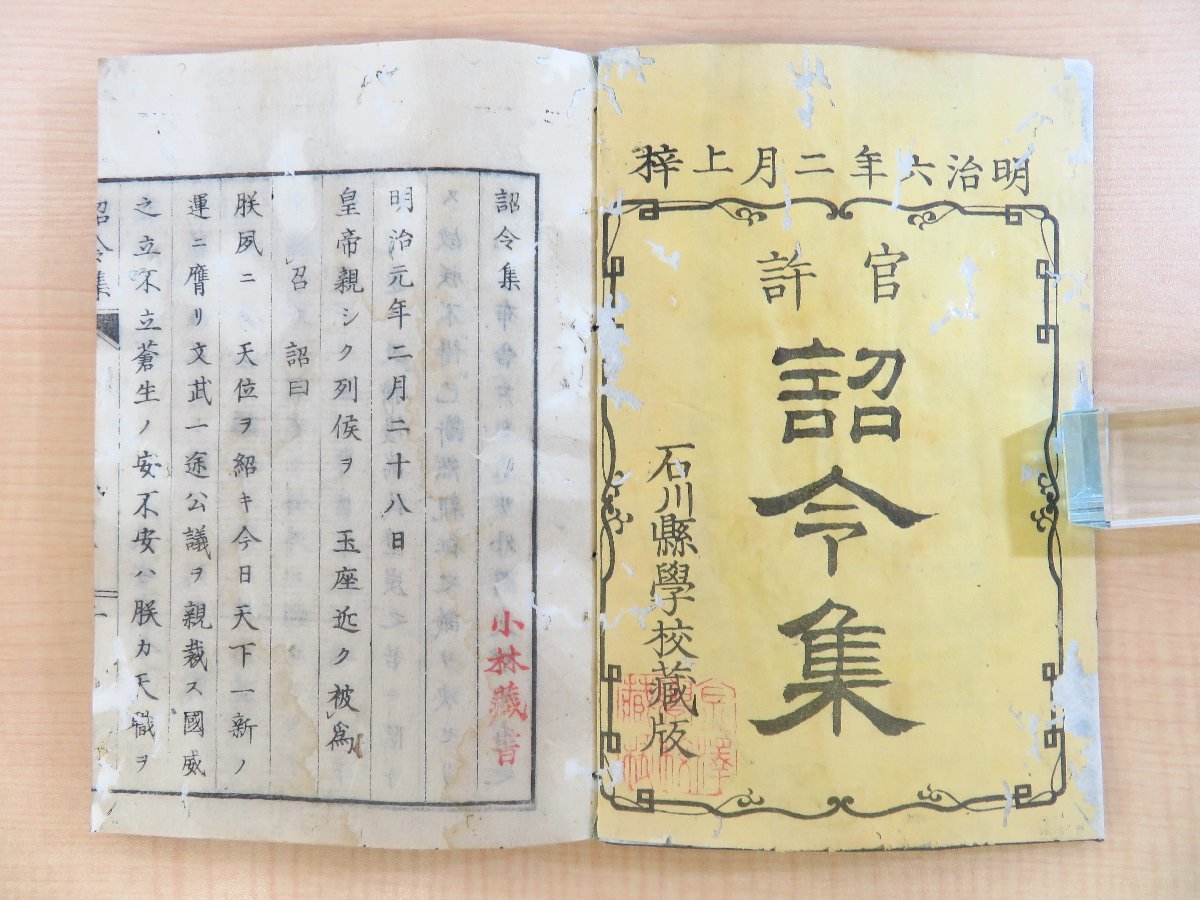 明治六年二月上梓
官許
詔令集
石川縣學校藏版
詔令集
小林藏書
明治元年二月二十八日
皇帝親シク列侯ヲ 玉座近ク被爲
召 詔曰
朕夙ニ 天位ヲ紹キ今日天下一新ノ
運ニ膺リ文武一途公議ヲ親裁ス國威
之立不立蒼生ノ安不安ハ朕カ天職ヲ
詔令集